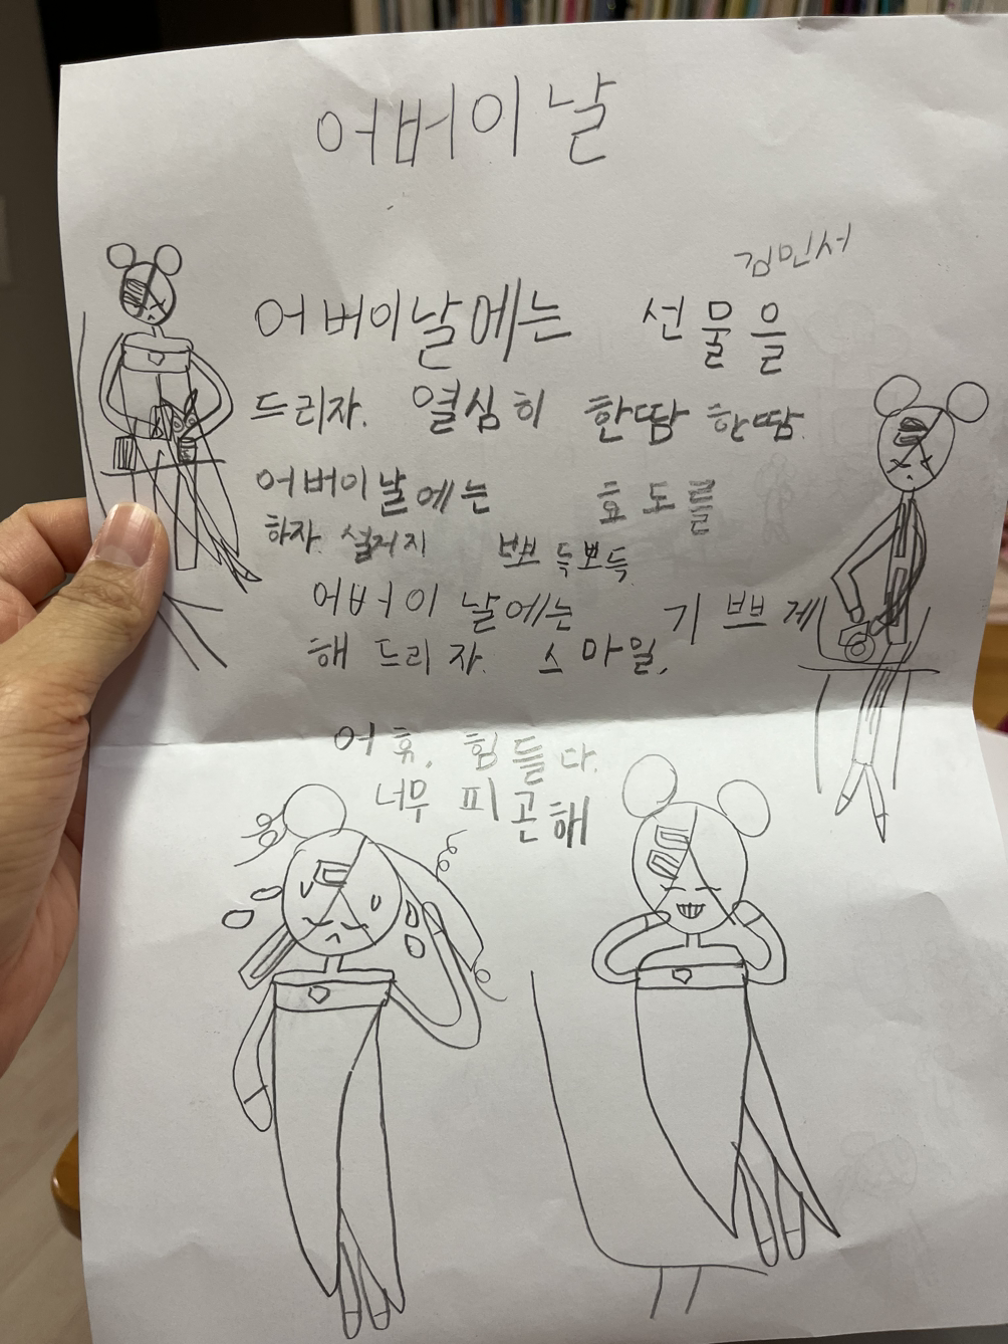 어버이날
김민서
어버이날에는 선물을
드리자. 열심히 한땀 한땀.
어버이날에는 효도를
하자. 설거지 뽀득뽀득
어버이날에는 기쁘게
해 드리자. 스마일,
어휴, 힘들다.
너무 피곤해